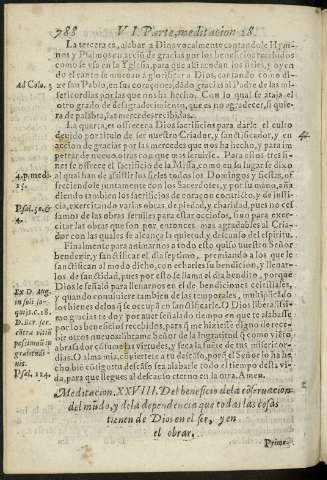 788 VI. Parte, meditacion 28.
La tercera es, alabar a Dios vocalmente cantandole Hym-
nos y Psalmos en acciõ de gracias por los beneficios recebidos
como se vsa en la Yglesia, para que alli acudan los fieles, y oyen
do el canto se mueuan a glorificar a Dios, cantando como di-
Ad Colo. 3
ze san Pablo, en sus coraçones, dãdo gracias al Padre de las mi-
sericordias por las que nos ha hecho. Con lo qual se ataja el
otro grado de desagradecimiento, que es no agradecer, si quie
ra de palabra, las mercedes recibidas.
La quarta, es ofrecer a Dios sacrificios para darle el culto
deuido por titulo de ser nuestro Criador, y sanctificador, y en
accion de gracias por las mercedes que nos ha hecho, y para im
petrar de nueuo, otras que nos seran
Para estos tres fi-
nes se ofrece el sacrificio de la Missa, como en su lugar se dixo
4. p. medi.
15.
al qual han de assistir los fieles todos los Domingos y fiestas, of
freciendole juntamente con los Sacerdotes, y por su mano, aña
diendo tambien los sacrificios de coraçon contricto, y de justi-
Psal. 50. &
4.
cia, exercitando varias obras de piedad, y charidad, pues no ces
samos de las obras seruiles para estar ociosos, sino para exer-
citar las obras que son por entonces mas agradables al Cria-
dor con las quales se alcança la quietud, y descanso del espiritu.
Finalmente para animarnos a todo esto quiso nuestro Señor
bendezir, y sanctificar el dia septimo, premiando a los que le
sanctifican al modo dicho, con echarles su bendicion, y llenar-
los de sanctidad, pues por esto se llama el dia bendito, porque
Dios le señalò para llenarnos en el de bendiciones celestiales,
Ex D. Aug.
y quando conuiniere tambien de las temporales, multiplicãdo
los bienes delos q̃ se occupã en sanctificarle. O Dios liberalissi-
mo gracias te doy por auer señalado tiempo en que te alabasse
por los beneficios recebidos, para q̃ me hiziesse digno de rece-
bir otros nueuos: librame Señor de la Ingratitud, q̃ como viẽto
abrasador consume las virtudes, y seca la fuente de tus misericor-
dias. O alma mia, conuiertete a tu descãso, porq̃ el Señor lo ha he
Psal. 114.
cho, bië es q̃ gustu descãso sea alabarle todo el tiempo desta vi-
da, para que llegues al descanso eterno en la otra. Amen.
Meditacion. XXVIII. Del beneficio de la cõseruacion
del mũdo, y de la dependencia que todas las cosas
tienen de Dios en el ser, y en
el obrar.
Prime-